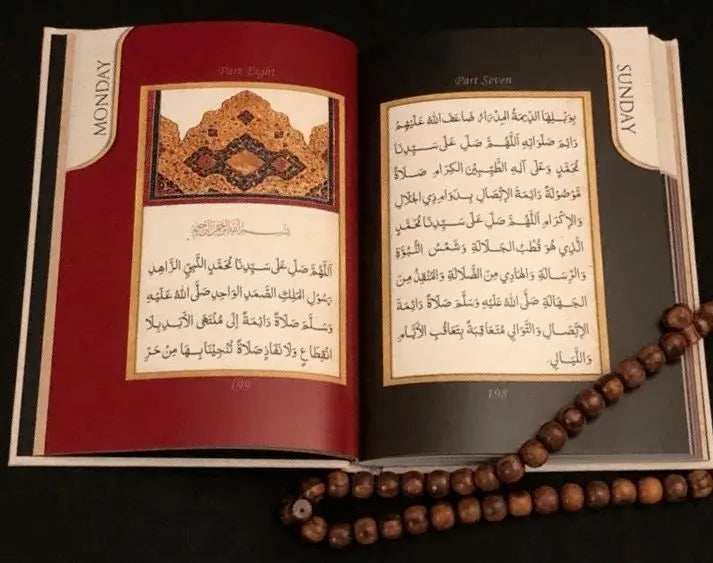 SUNDAY
Part Seven
بِوَبْلِهَا الدِّيمَةُ الْمِدْرَارُ ضَاعَفَ اللهُ عَلَيْهِمْ
دَائِمَ صَلَوَاتِهِ اَللَّهُمَّ صَلِّ عَلَى سَيِّدِنَا
مُحَمَّدٍ وَعَلَى آلِهِ الطَّيِّبِينَ الْكِرَامِ صَلَاةً
مَوْصُولَةً دَائِمَةَ الْإِتِّصَالِ بِدَوَامِ ذِي الْجَلَالِ
وَالْإِكْرَامِ اَللَّهُمَّ صَلِّ عَلَى سَيِّدِنَا مُحَمَّدٍ
الَّذِي هُوَ قُطْبُ الْجَلَالَةِ وَشَمْسُ النُّبُوَّةِ
وَالرِّسَالَةِ وَالْهَادِي مِنَ الضَّلَالَةِ وَالْمُنْقِذُ مِنَ
الْجَهَالَةِ صَلَّى اللهُ عَلَيْهِ وَسَلَّمَ صَلَاةً دَائِمَةَ
الْإِتِّصَالِ وَالتَّوَالِي مُتَعَاقِبَةً بِتَعَاقُبِ الْأَيَّامِ
وَاللَّيَالِي.
198
MONDAY
Part Eight
بِسْمِ اللهِ الرَّحْمٰنِ الرَّحِيمِ
اَللَّهُمَّ صَلِّ عَلَى سَيِّدِنَا مُحَمَّدٍ النَّبِيِّ الزَّاهِدِ
رَسُولِ الْمَلِكِ الصَّمَدِ الْوَاحِدِ صَلَّى اللهُ عَلَيْهِ
وَسَلَّمَ صَلَاةً دَائِمَةً إِلَى مُنْتَهَى الْأَبَدِ بِلَا
انْقِطَاعٍ وَلَا نَفَادٍ صَلَاةً تُنْجِينَا بِهَا مِنْ حَرِّ
199